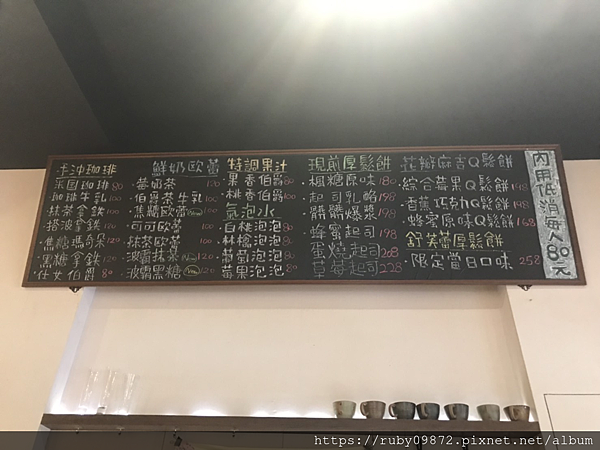 手沖珈琲
采園珈琲 80
珈琲牛乳 100
抹茶拿鐵 120
搭波拿鐵
焦糖瑪奇朵 120
黑糖拿鐵 120
仕女伯爵 80
鮮奶歐蕾
莓奶茶
伯爵茶牛乳 100
焦糖歐蕾
可可歐蕾 100
抹茶歐蕾 100
波霸抹茶 120
波霸黑糖 120
特調果汁
果香伯爵 80
桃香伯爵
氣泡水
白桃泡泡 80
林檎泡泡 80
葡萄泡泡 80
莓果泡泡 80
現煎厚鬆餅
楓糖原味 180
起司乳酪 198
髒髒爆漿 198
蜂蜜起司 198
蛋燒起司 208
草莓起司 228
花瓣麻吉Q鬆餅
綜合莓果Q鬆餅 198
香蕉巧克力Q鬆餅 198
蜂蜜原味Q鬆餅 168
舒芙蕾厚鬆餅
限定當日口味 258
內用低消每人80元
https://ruby09872.pixnet.net/album